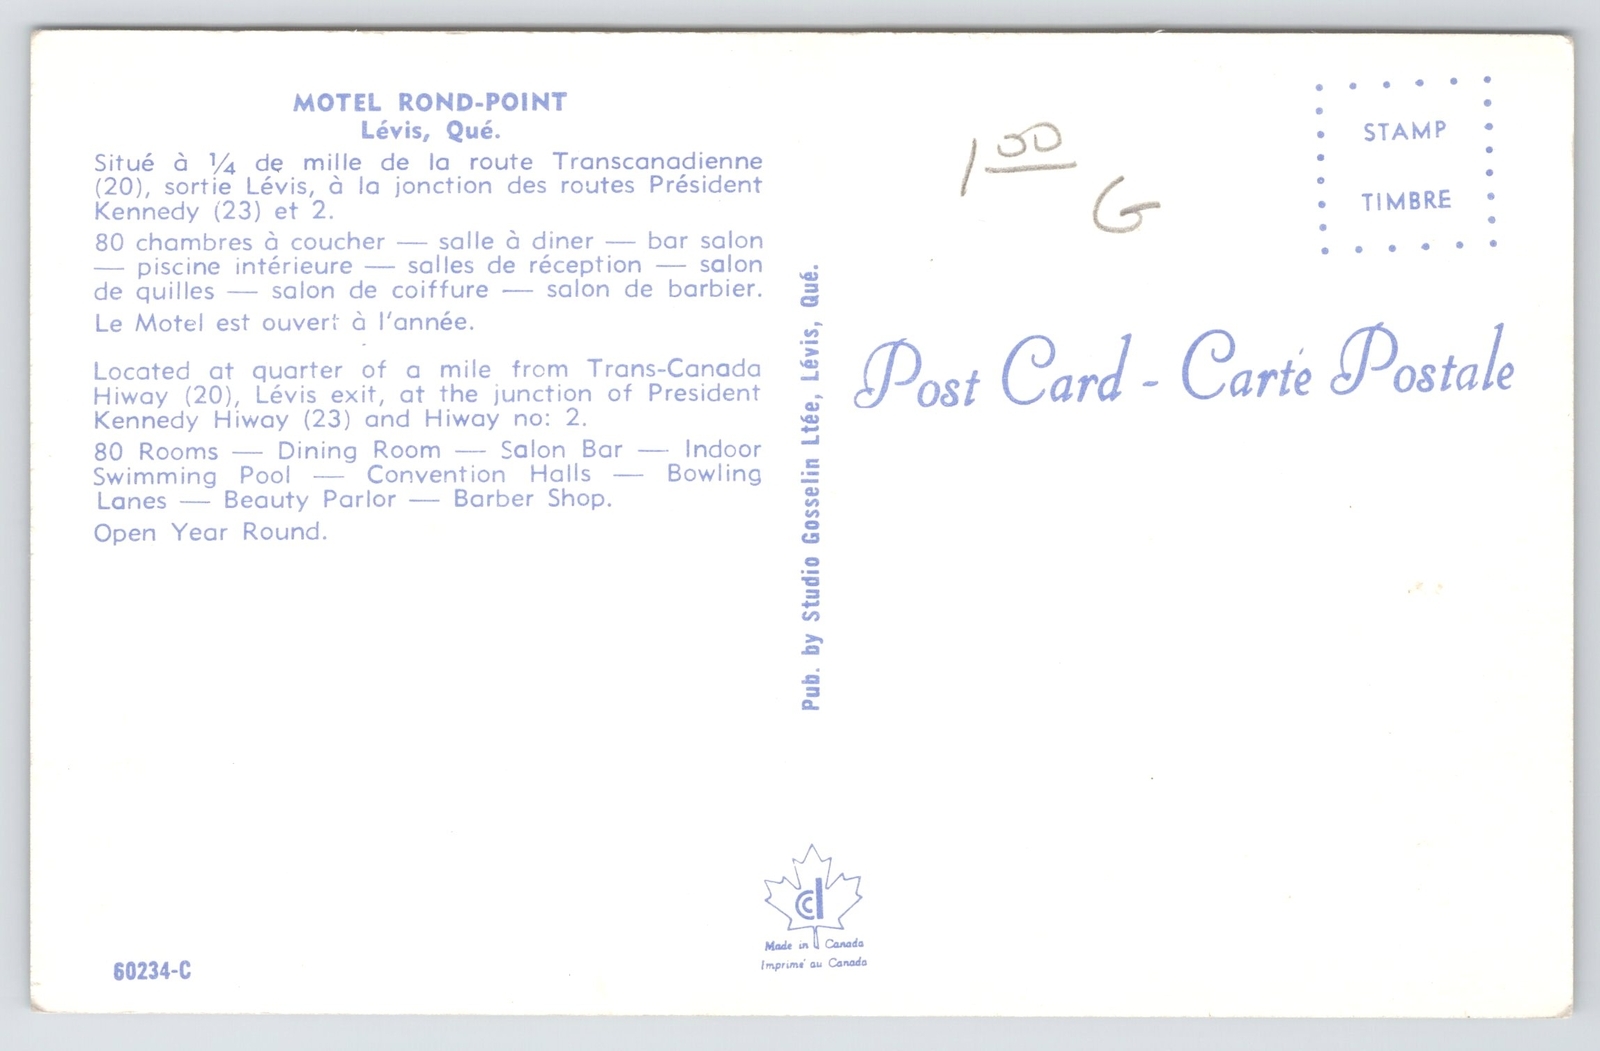 MOTEL ROND-POINT
Lévis, Qué.
Situé à ¼ de mille de la route Transcanadienne
(20), sortie Lévis, à la jonction des routes Président
Kennedy (23) et 2.
80 chambres à coucher — salle à diner — bar salon
— piscine intérieure — salles de réception — salon
de quilles — salon de coiffure — salon de barbier.
Le Motel est ouvert à l'année.
Located at quarter of a mile from Trans-Canada
Hiway (20), Lévis exit, at the junction of President
Kennedy Hiway (23) and Hiway no: 2.
80 Rooms — Dining Room — Salon Bar — Indoor
Swimming Pool — Convention Halls — Bowling
Lanes — Beauty Parlor — Barber Shop.
Open Year Round.
60234-C
Pub. by Studio Gosselin Ltée, Lévis, Qué.
1 00
G
STAMP
TIMBRE
Post Card - Carte Postale
ccl
Made in Canada
Imprimé au Canada